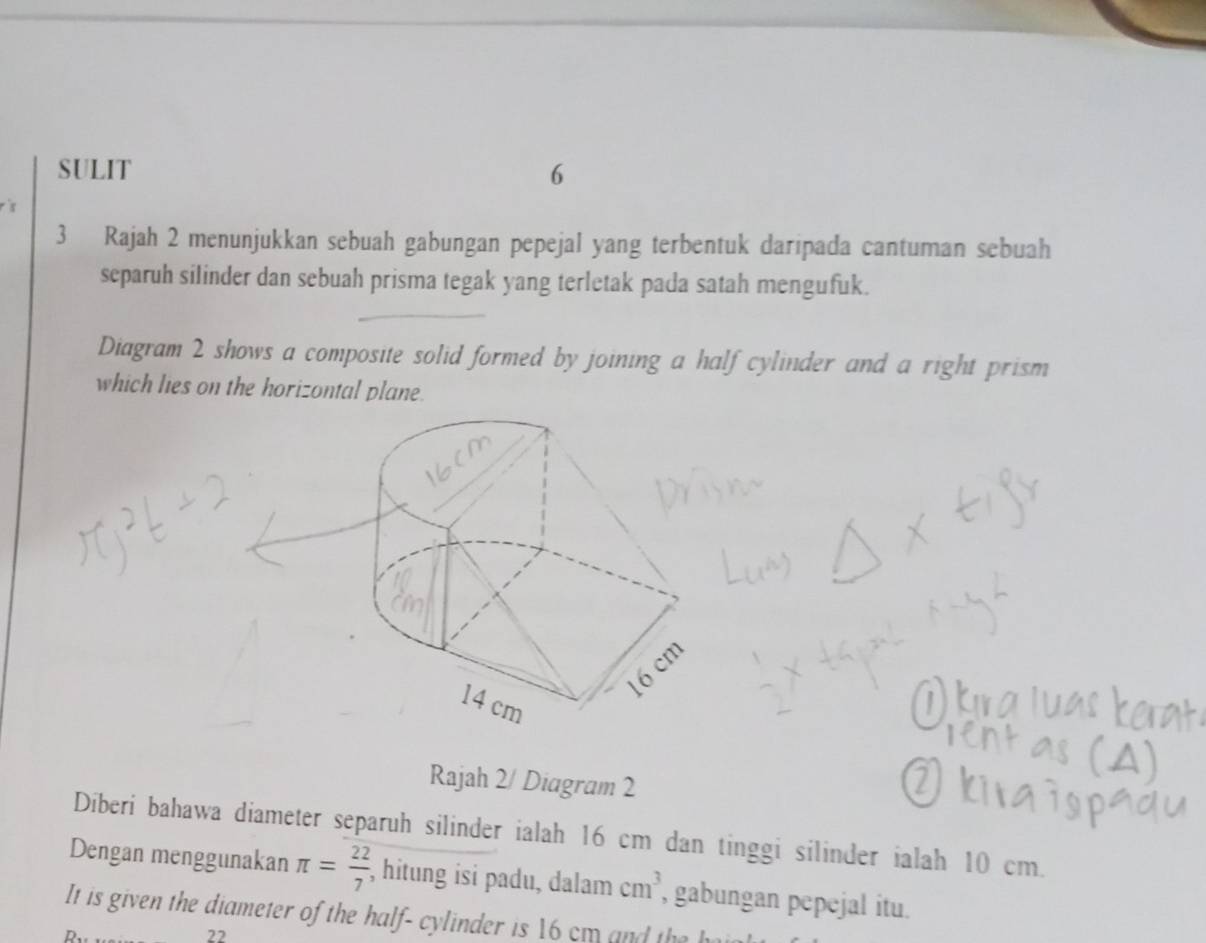 SULIT
6
r's
3 Rajah 2 menunjukkan sebuah gabungan pepejal yang terbentuk daripada cantuman sebuah
separuh silinder dan sebuah prisma tegak yang terletak pada satah mengufuk.
Diagram 2 shows a composite solid formed by joining a half cylinder and a right prism
which lies on the horizontal plane.
16 cm
πj²t ÷ 2
prism
Luas Δ x
10
cm
½ x
16 cm
14 cm
① kira luas kerat
rentas (Δ)
② kira isipadu
Rajah 2/ Diagram 2
Diberi bahawa diameter separuh silinder ialah 16 cm dan tinggi silinder ialah 10 cm.
Dengan menggunakan π = 22/7, hitung isi padu, dalam cm³, gabungan pepejal itu.
It is given the diameter of the half- cylinder is 16 cm and the
22